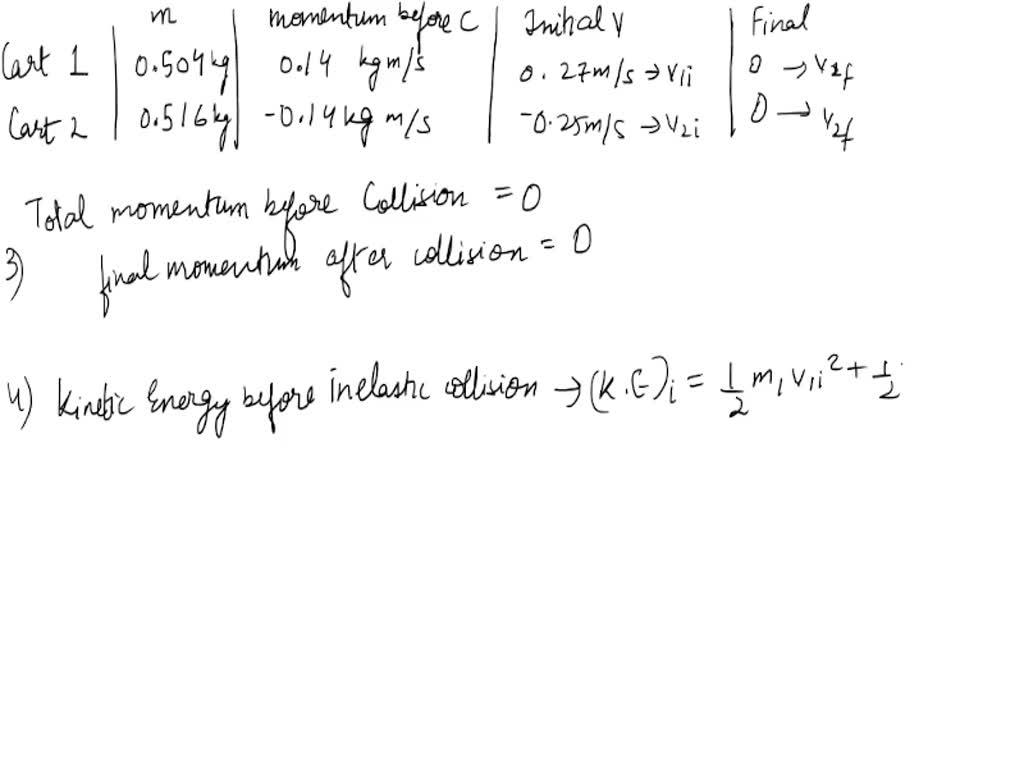 m | momentum before C | Initial V | Final
Cart 1 | 0.504 kg | 0.14 kg m/s | 0.27 m/s → v1i | 0 → v1f
Cart 2 | 0.516 kg | -0.14 kg m/s | -0.25 m/s → v2i | 0 → v2f
Total momentum before Collision = 0
3) final momentum after collision = 0
4) Kinetic Energy before inelastic collision → (K.E)i = 1/2 m1 v1i² + 1/2